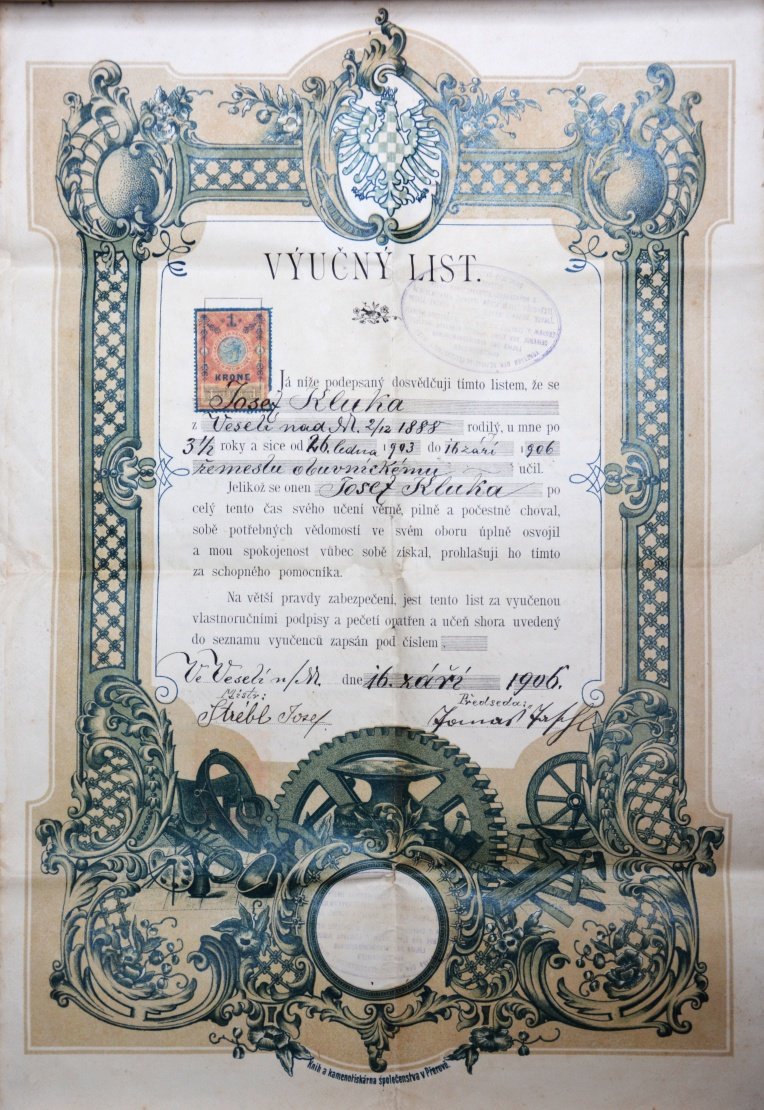 VÝUČNÝ LIST.
1
KRONE
Já níže podepsaný dosvědčuji tímto listem, že se
Josef Kluka
z Veselí nad M. 2/12 1888 rodilý, u mne po
3 1/2 roky a sice od 26. ledna 1903 do 16 září 1906
řemeslu obuvnickému učil.
Jelikož se onen Josef Kluka po
celý tento čas svého učení věrně, pilně a počestně choval,
sobě potřebných vědomostí ve svém oboru úplně osvojil
a mou spokojenost vůbec sobě získal, prohlašuji ho tímto
za schopného pomocníka.
Na větší pravdy zabezpečení, jest tento list za vyučenou
vlastnoručními podpisy a pečetí opatřen a učeň shora uvedený
do seznamu vyučenců zapsán pod číslem
Ve Veselí n/M. dne 16. září 1906.
Mistr: Předseda:
Strébl Josef Tomáš
Knih a kamenotiskárna společenstva v Přerově